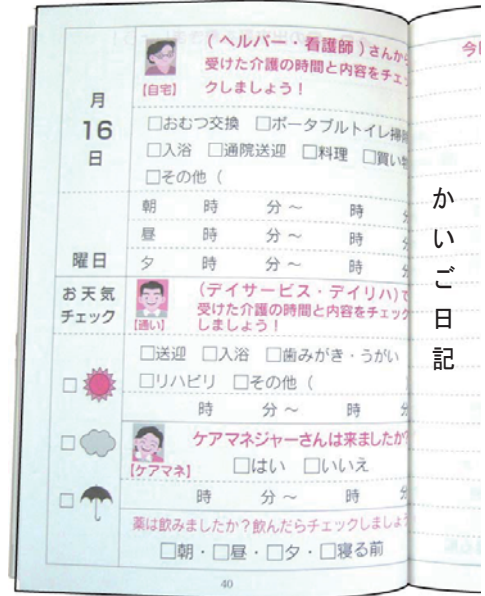 月
16
日
曜日
お天気
チェック
【自宅】
(ヘルパー・看護師)さんから
受けた介護の時間と内容をチェッ
クしましょう！
□おむつ交換 □ポータブルトイレ掃除
□入浴 □通院送迎 □料理 □買い物
□その他（
朝 時 分〜 時 分
昼 時 分〜 時 分
夕 時 分〜 時 分
【通い】
(デイサービス・デイリハ)で
受けた介護の時間と内容をチェック
しましょう！
□送迎 □入浴 □歯みがき・うがい
□リハビリ □その他（
時 分〜 時 分
【ケアマネ】
ケアマネジャーさんは来ましたか?
□はい □いいえ
時 分〜 時 分
薬は飲みましたか？飲んだらチェックしましょう
□朝・□昼・□夕・□寝る前
40
かいご日記